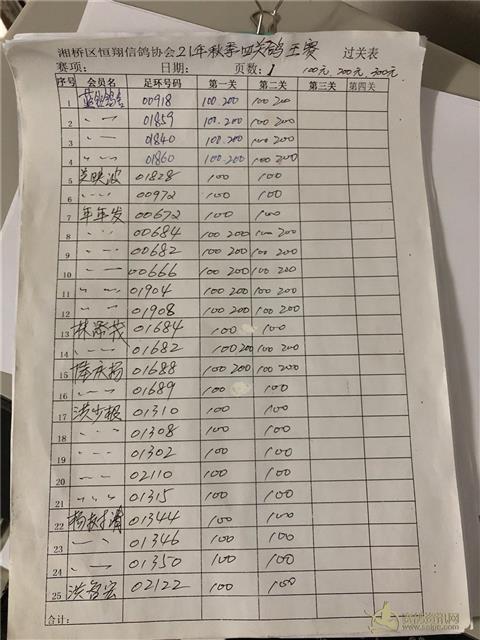 湘桥区恒翔信鸽协会21年秋季四关鸽王赛 过关表
赛项: 日期: 页数: 1 100元, 200元, 300元
序号 会员名 足环号码 第一关 第二关 第三关 第四关
1 00918 100 200 100 200
2 〃 01859 100.200 100.200
3 〃 01840 100.200 100.200
4 〃 01860 100.200 100.200
5 映波 01828 100 100
6 〃 00972 100 100
7 年年发 00672 100 100
8 〃 00684 100 200 100 200
9 〃 00682 100 200 100 200
10 〃 00666 100 200 100 200
11 〃 01904 100 200 100 200
12 〃 01908 100 200 100 200
13 林 01684 100 100
14 〃 01682 100 200 100 200
15 陈 01688 100 200 100 200
16 〃 01689 100 100
17 洪少 01310 100 100
18 〃 01308 100 100
19 〃 01302 100 100
20 〃 02110 100 100
21 〃 01315 100 100
22 杨 01344 100 100
23 〃 01346 100 100
24 〃 01350 100 100
25 洪 宏 02122 100 100
合计: